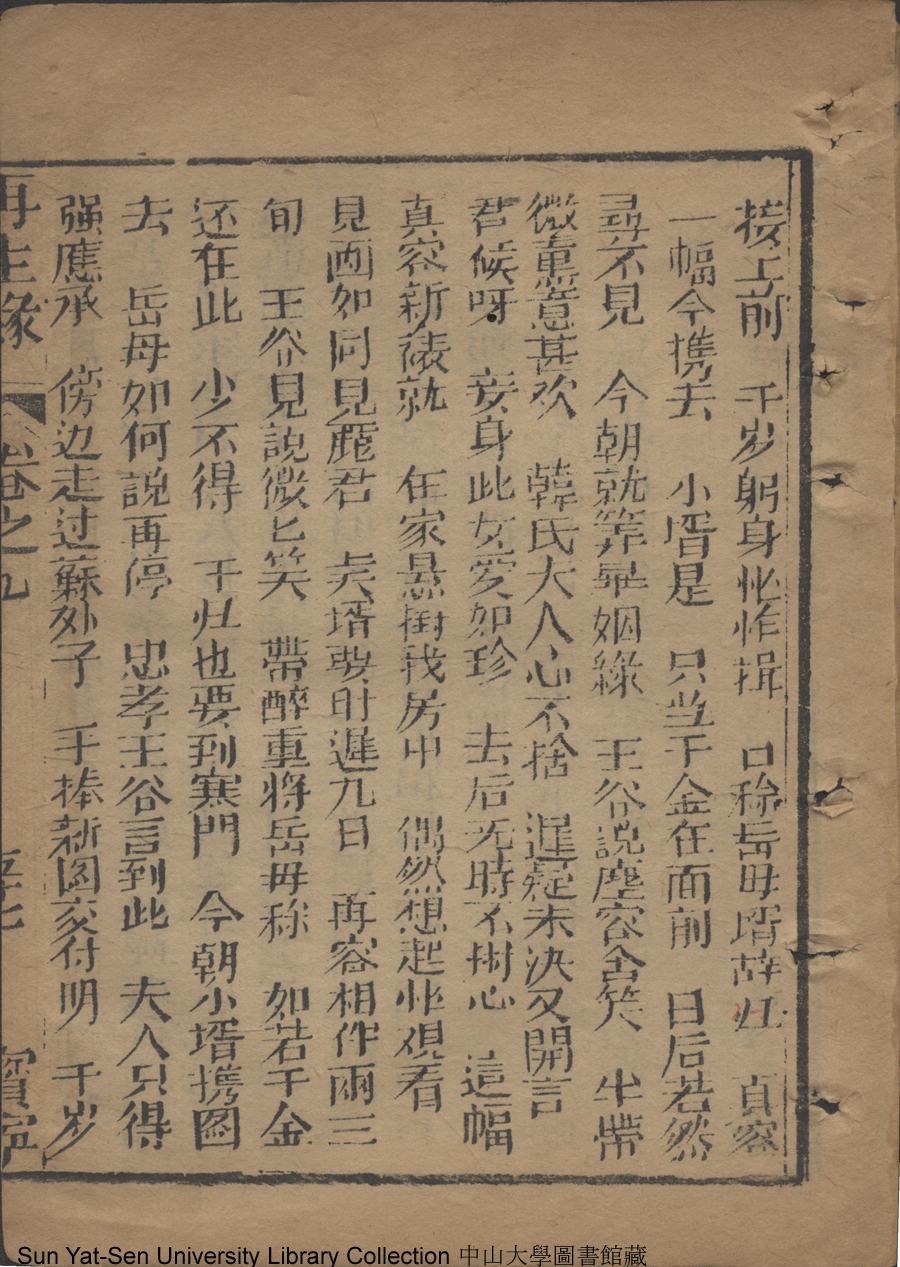 接上前　千岁躬身忙作揖　口称岳母壻辞归　真容
一幅今携去　小壻是　只当千金在面前　日后若然
尋不見　今朝就算是姻緣　王爷說塵容含笑　半帶
微熏意甚欢　韓氏大人心不捨　遲疑未決又開言
君候呀　妾身此女爱如珍　去后无時不掛心　這幅
真容新裱就　在家悬掛我房中　偶然想起忙观看
見画如同見麗君　賢壻要时遲九日　再容相伴兩三
旬　王爷見說微匕笑　帶醉重將岳毋称　如若千金
还在此　少不得　于归也要到寒門　今朝小壻携图
去　岳母如何說再停　忠孝王爷言到此　夫人只得
强應承　傍边走过蘇外子　手捧新图交付明　千岁
再生緣　卷之九　寶寧
Sun Yat-Sen University Library Collection 中山大學圖書館藏